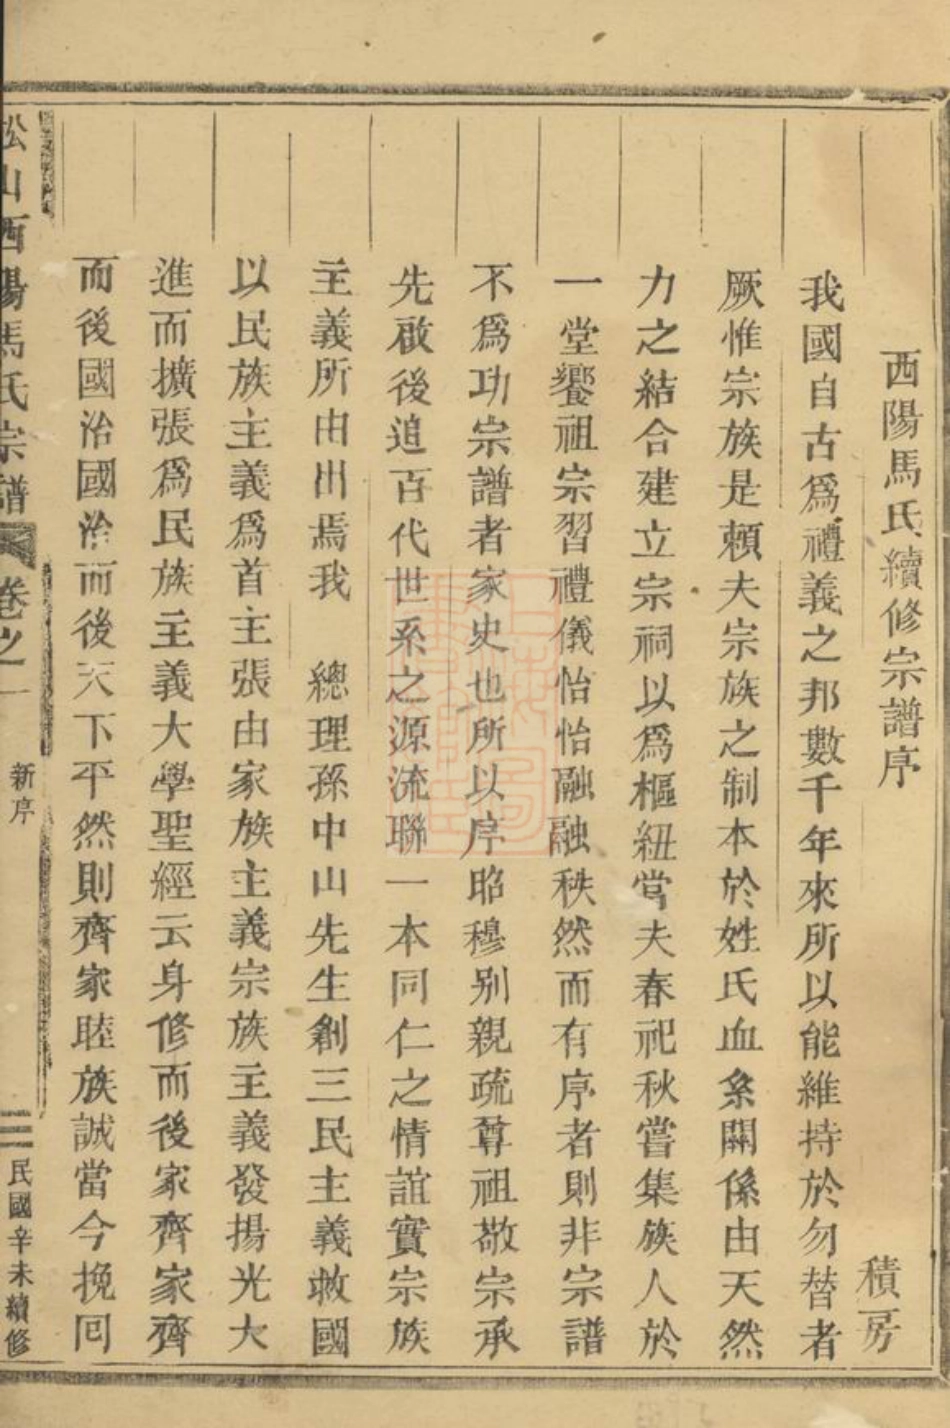 西陽馬氏續修宗譜序
積房
我國自古爲禮義之邦數千年來所以能維持於勿替者
厥惟宗族是賴夫宗族之制本於姓氏血系關係由天然
力之結合建立宗祠以爲樞紐當夫春祀秋嘗集族人於
一堂饗祖宗習禮儀怡怡融融秩然而有序者則非宗譜
不爲功宗譜者家史也所以序昭穆别親疏尊祖敬宗承
先啟後追百代世系之源流聯一本同仁之情誼實宗族
主義所由出焉我　總理孫中山先生創三民主義救國
以民族主義爲首主張由家族主義宗族主義發揚光大
進而擴張爲民族主義大學聖經云身修而後家齊家齊
而後國治國治而後天下平然則齊家睦族誠當今挽回
松山西陽馬氏宗譜
卷之一
新序
三
民國辛未續修